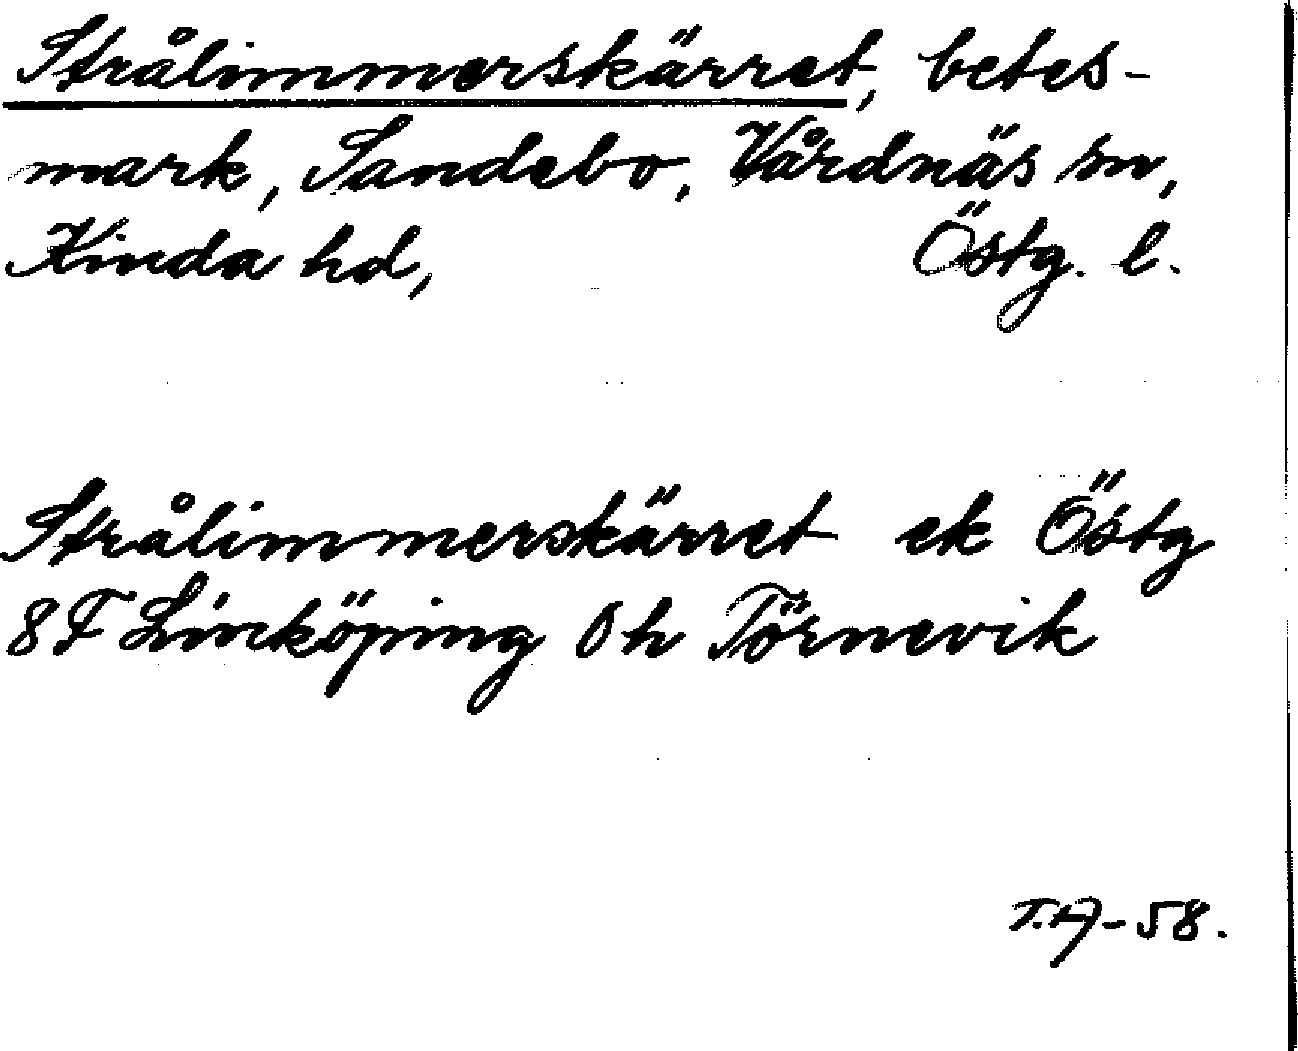 Strålimmerskärret, betes-
mark, Sandebo, Vårdnäs sn,
Kinda hd, Östg. l.
Strålimmerskärret ek Östg
8F Linköping 0h Törnevik
T.A-58.